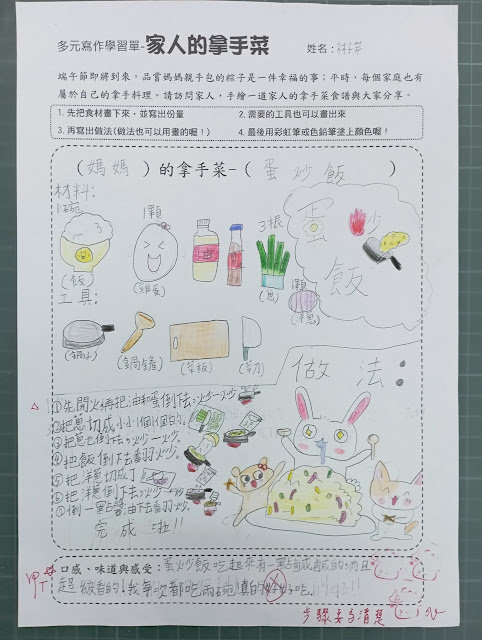 多元寫作學習單-家人的拿手菜 姓名:
端午節即將到來,品嘗媽媽親手包的粽子是一件幸福的事;平時,每個家庭也有
屬於自己的拿手料理。請訪問家人,手繪一道家人的拿手菜食譜與大家分享。
1. 先把食材畫下來,並寫出份量 2. 需要的工具也可以畫出來
3. 再寫出做法(做法也可以用畫的喔!) 4. 最後用彩虹筆或色鉛筆塗上顏色喔!
(媽媽)的拿手菜-(蛋炒飯)
材料:
1碗 1顆 3根
(飯) (雞蛋) (蔥)
1顆
(洋蔥)
蛋炒飯
工具:
(鍋子) (鍋鏟) (菜板) (菜刀)
做法:
①先開火再把油和蛋倒下去炒一炒
②把蔥切成小小個個的。
③把蔥也倒下去炒一炒。
④把飯倒下去翻炒。
⑤把洋蔥切成丁
⑥把洋蔥倒下去炒一炒
⑦倒一點醬油下去翻炒。
完成啦!!
口感、味道與感受:蛋炒飯吃起來有一點鹹鹹的而且
超級香的!我每次都吃兩碗!真的好好吃
步驟要寫清楚